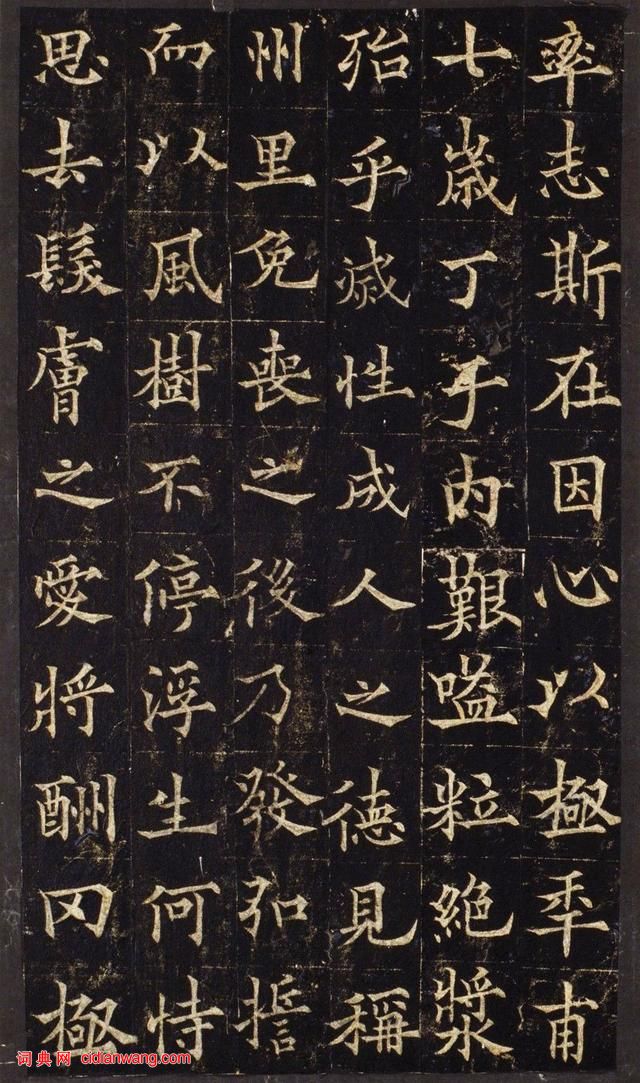 率志斯在因心以極秊甫
七歲丁于内艱嗑粒絶漿
殆乎滅性成人之德見稱
州里免喪之後乃發弘誓
而以風樹不停浮生何恃
思去髮膚之愛將酬罔極
词典网 cidianwang.com